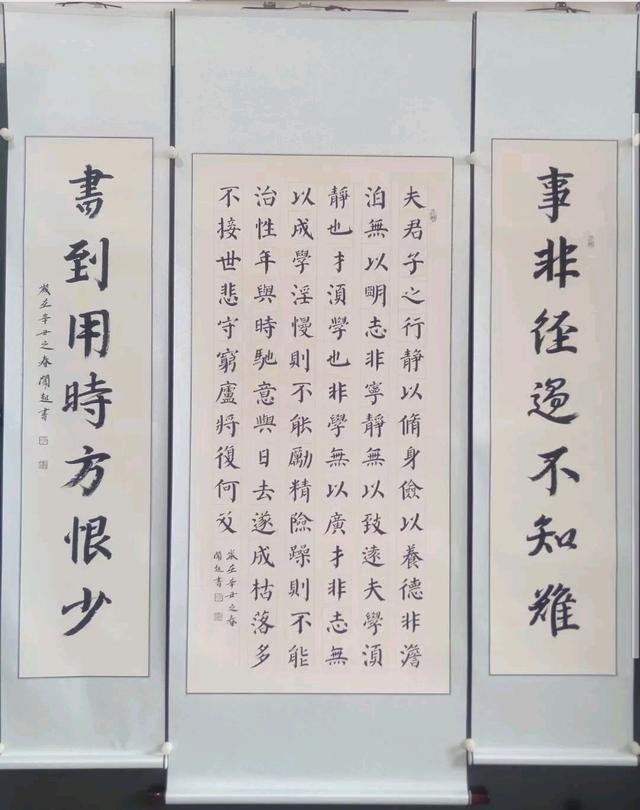 事非径過不知難
夫君子之行靜以脩身儉以養德非澹
泊無以明志非寧靜無以致遠夫學須
靜也才須學也非學無以廣才非志無
以成學淫慢則不能勵精險躁則不能
治性年與時馳意與日去遂成枯落多
不接世悲守窮廬將復何及
歲在辛丑之春
書
書到用時方恨少
歲在辛丑之春書